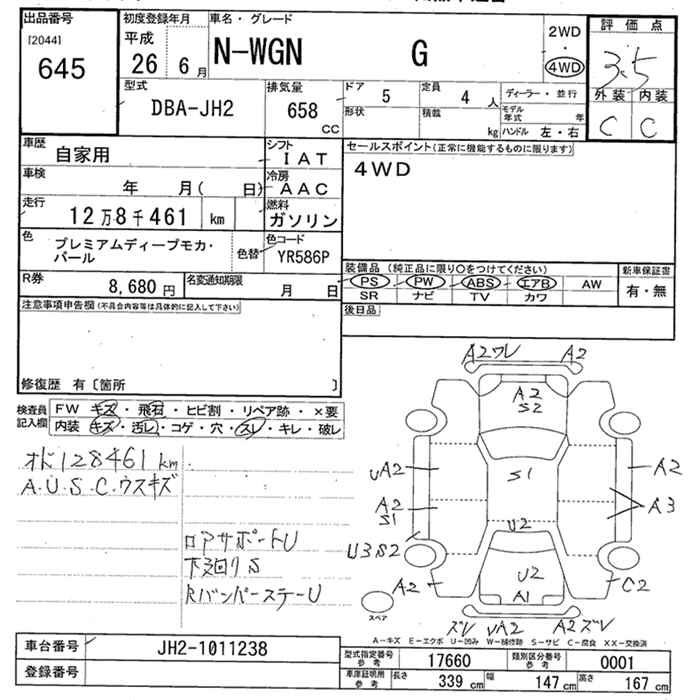 出品番号
[2044]
645
初度登録年月
平成
26 6月
車名・グレード
N-WGN G
2WD
・
4WD
評価点
3.5
外装 内装
C C
型式
DBA-JH2
排気量
658
CC
ドア 5
形状
定員 4 人
積載 kg
ディーラー・並行
モデル年式 年
ハンドル 左・右
車歴
自家用
シフト
IAT
セールスポイント(正常に機能するものに限ります)
4WD
車検
年 月( 日)
冷房
AAC
走行
12万8千461 km
燃料
ガソリン
色
プレミアムディープモカ・
パール
色替
色コード
YR586P
R券
8,680円
名変通知期限
月 日
装備品 (純正品に限り○をつけてください)
PS PW ABS エアB AW
SR ナビ TV カワ
新車保証書
有・無
注意事項申告欄(不具合内容等は具体的に記入して下さい)
後日品
修復歴 有〔箇所 〕
検査員
記入欄
FW キズ・飛石・ヒビ割・リペア跡・×要
内装 キズ・汚レ・コゲ・穴・スレ・キレ・破レ
オド128461km
A.U.S.C.ウスキズ
ロアサポートU
下廻りS
RバンパーステーU
A2ワレ A2
A2
S2
UA2
S1
A2
A2
S1
A3
U2
U3S2
A2
U2
A1
C2
スペア
ズレ UA2 A2ズレ
A-キズ E-エクボ U-凹み W-補修跡 S-サビ C-腐食 XX-交換済
車台番号
JH2-1011238
登録番号
型式指定番号
参考
17660
類別区分番号
参考
0001
車庫証明用
参考
長さ 339 cm
幅 147 cm
高さ 167 cm